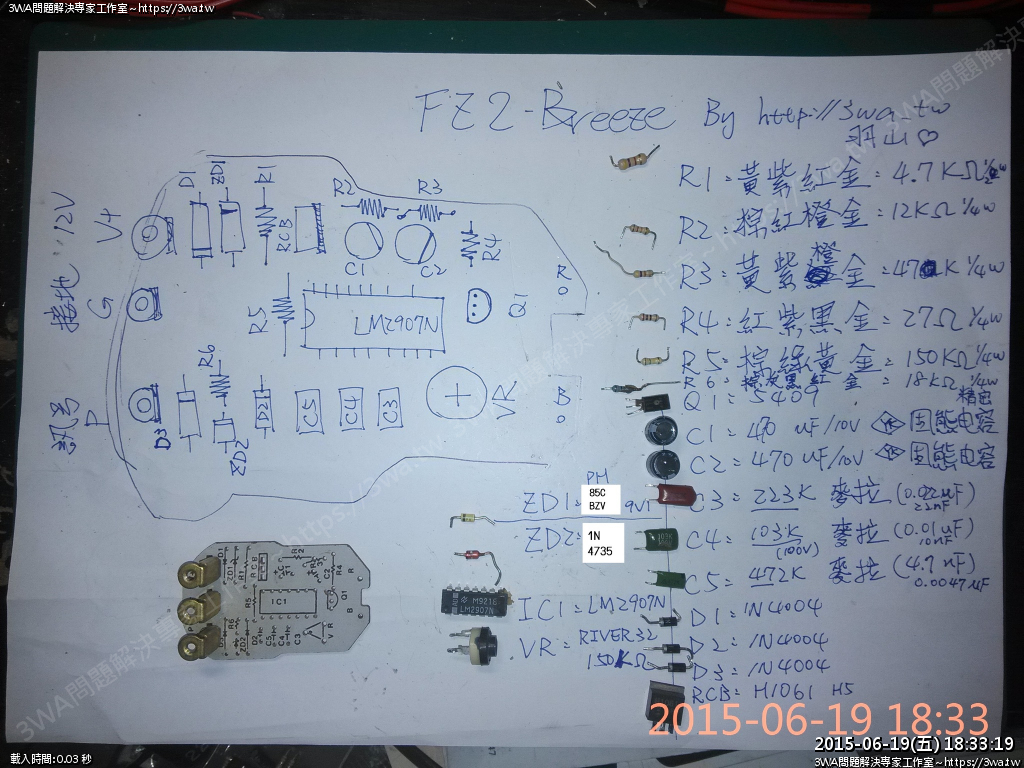 3WA問題解決專家工作室~https://3wa.tw
FZ2-Breeze By http://3wa.tw
羽山♡
R1=黃紫紅金=4.7KΩ¼w
R2=棕紅橙金=12KΩ¼w
R3=黃紫橙金=47K¼w
R4=紅紫黑金=27Ω¼w
R5=棕綠黃金=150KΩ¼w
R6=棕灰黑紅金=18KΩ¼w
精密
Q1=5409
C1=470uF/10V 固態电容
C2=470uF/10V 固態电容
C3=223K 麥拉(0.022uF)
22nF
C4=103K 麥拉(0.01uF)
(100V) 10nF
C5=472K 麥拉(4.7nF)
0.0047uF
D1=1N4004
D2=1N4004
D3=1N4004
RCB=H1061 H5
PH
ZD1=85C
BZV
9V1
ZD2=1N
4735
IC1=LM2907N
VR=RIVER32
150KΩ
M921E
LM2907N
訊号 接地 12V
P G V+
D1
ZD1
R1
RCB
R2
R3
C1
C2
R4
R5
LM2907N
Q1
R
R6
D3
ZD2
D2
C5
C4
C3
VR
B
D1
ZD1
R1
RCB
R2
C2
R4
R
R5
IC1
Q1
R6
ZD2
D2
C5
C4
C3
VR
B
2015-06-19 18:33
2015-06-19(五) 18:33:19
載入時間:0.03 秒
3WA問題解決專家工作室~https://3wa.tw